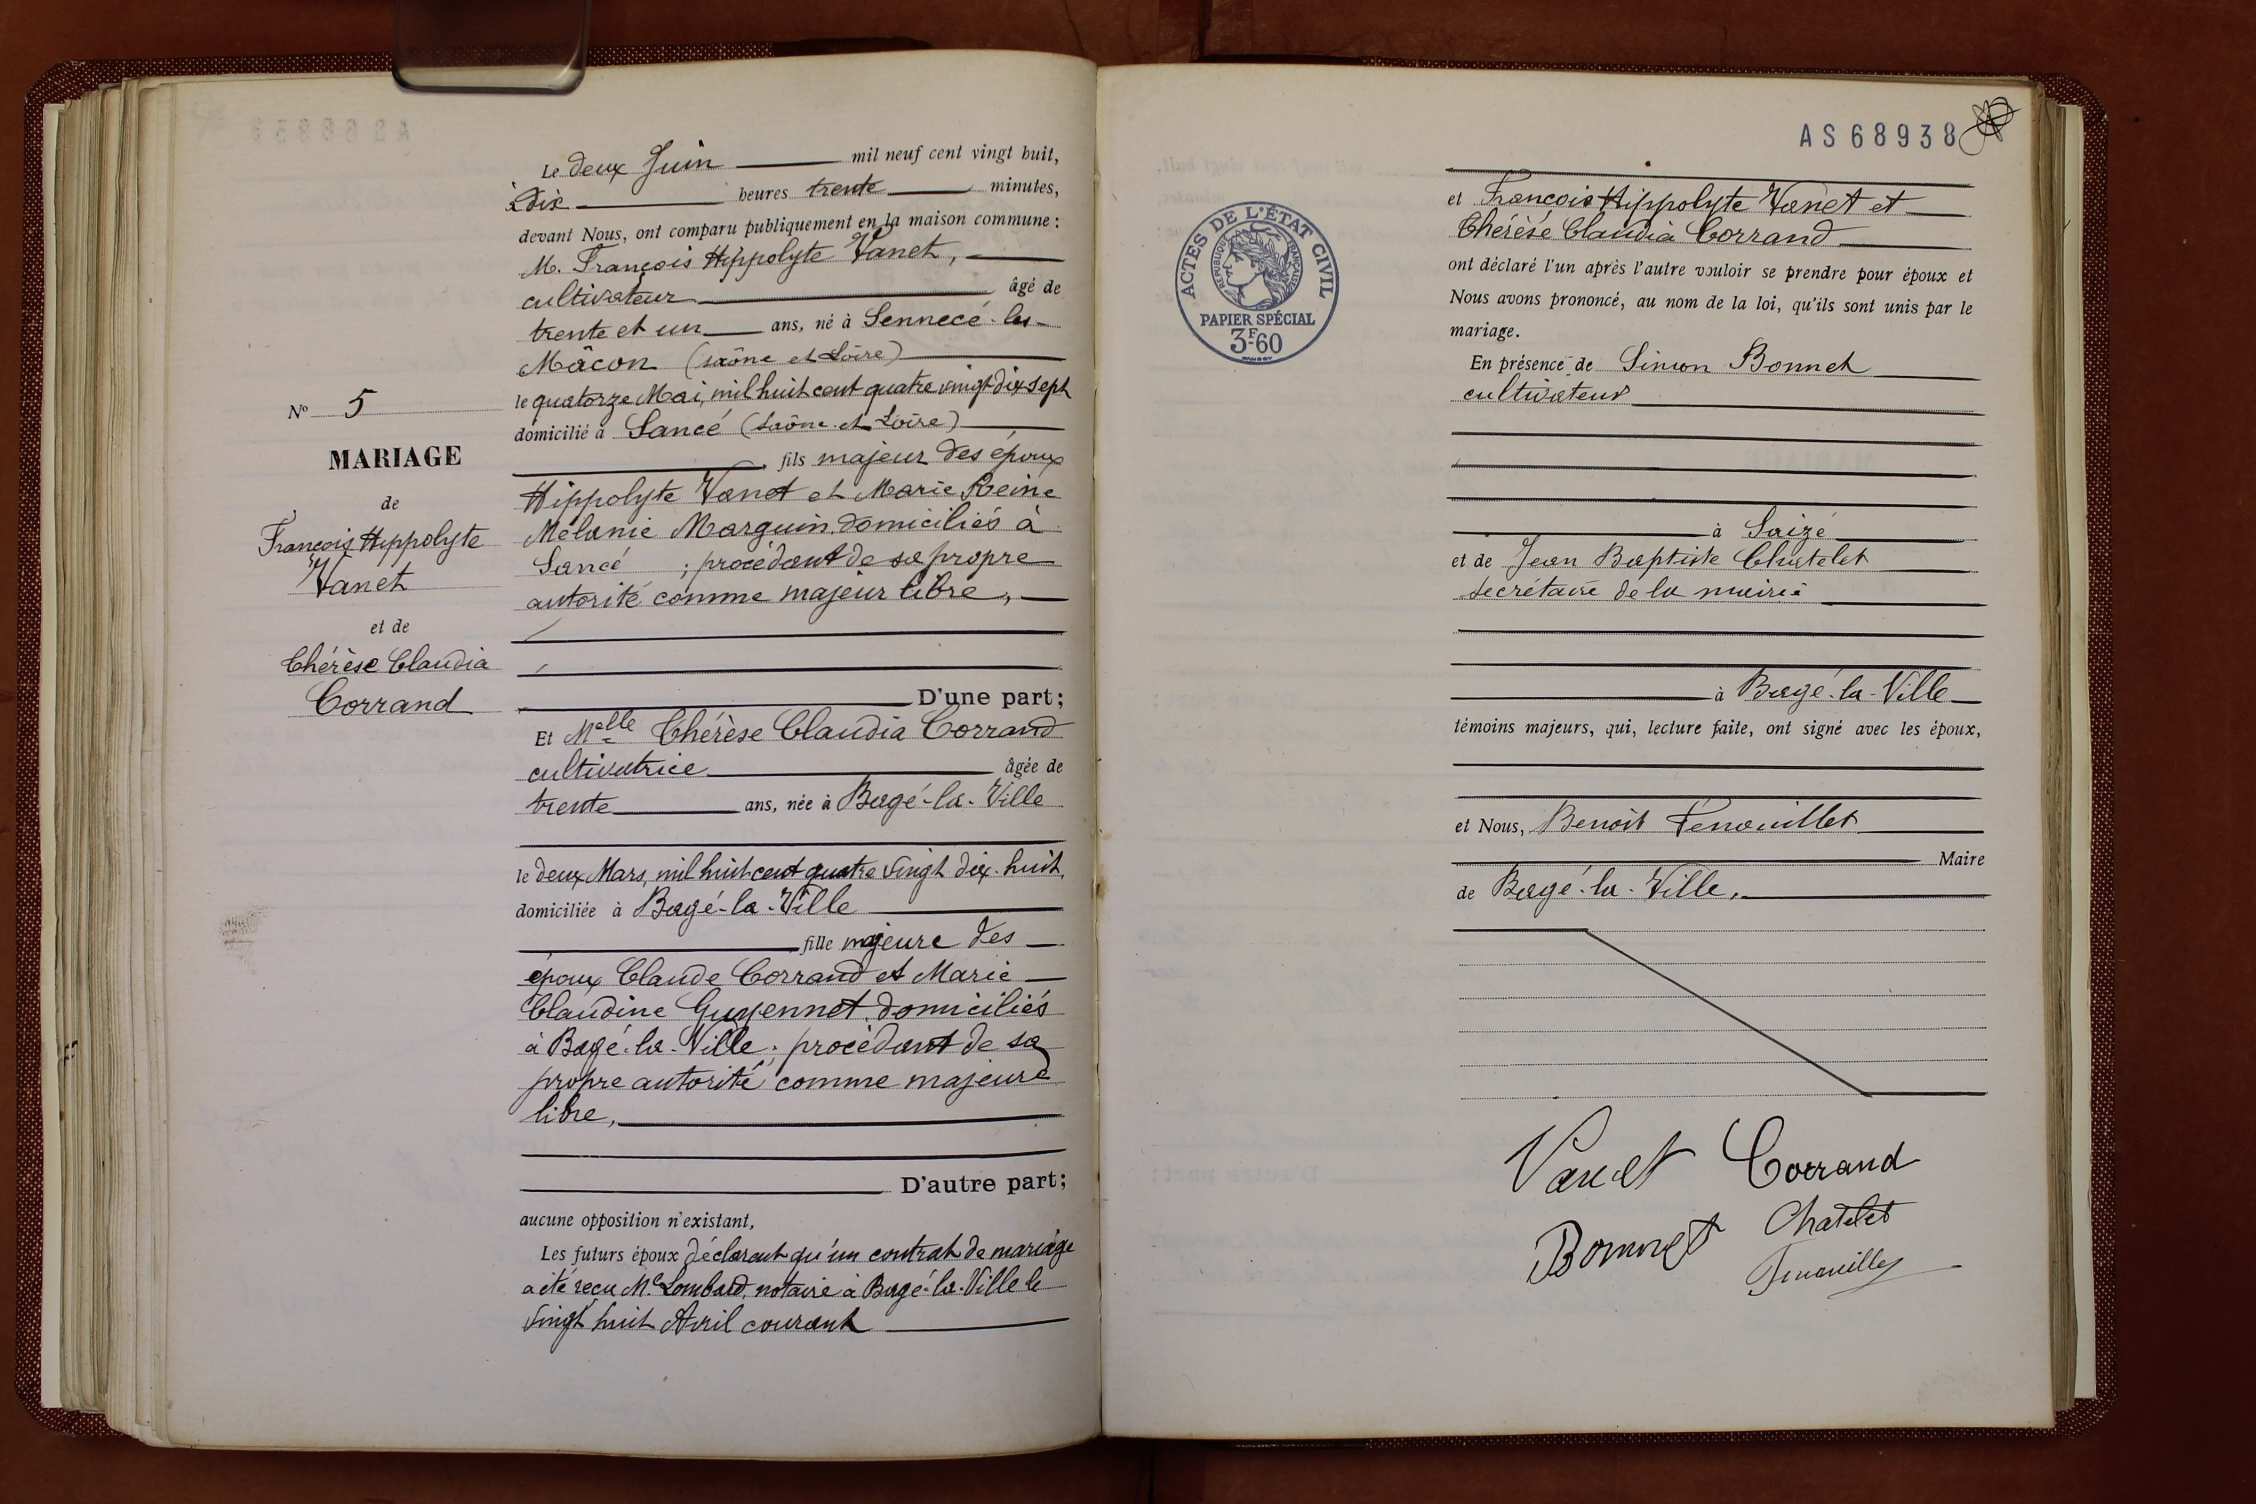 Le deux Juin mil neuf cent vingt huit,
à dix heures trente minutes,
devant Nous, ont comparu publiquement en la maison commune :
M. François Hippolyte Vanet,
cultivateur âgé de
trente et un ans, né à Sennecé-les-
Mâcon (Saône et Loire)
le quatorze Mai, mil huit cent quatre vingt dix sept
domicilié à Sancé (Saône et Loire)
fils majeur des époux
Hippolyte Vanet et Marie Reine
Mélanie Marguin, domiciliés à
Sancé ; procédant de sa propre
autorité comme majeur libre,
D'une part;
Et Melle Thérèse Claudia Corrand
cultivatrice âgée de
trente ans, née à Bagé-la-Ville
le deux Mars, mil huit cent quatre vingt dix-huit,
domiciliée à Bagé-la-Ville
fille majeure des
époux Claude Corrand et Marie
Claudine Guyennet, domiciliés
à Bagé-la-Ville ; procédant de sa
propre autorité comme majeure
libre,
D'autre part;
aucune opposition n'existant,
Les futurs époux déclarent qu'un contrat de mariage
a été reçu Me Lombard, notaire à Bagé-la-Ville le
vingt huit Avril courant
No 5
MARIAGE
de
François Hippolyte
Vanet
et de
Thérèse Claudia
Corrand
AS68938
ACTES DE L'ÉTAT CIVIL
RÉPUBLIQUE FRANÇAISE
PAPIER SPÉCIAL
3F60
et François Hippolyte Vanet et
Thérèse Claudia Corrand
ont déclaré l'un après l'autre vouloir se prendre pour époux et
Nous avons prononcé, au nom de la loi, qu'ils sont unis par le
mariage.
En présence de Simon Bonnet
cultivateur
à Saizé
et de Jean Baptiste Chatelet
secrétaire de la mairie
à Bagé-la-Ville
témoins majeurs, qui, lecture faite, ont signé avec les époux,
et Nous, Benoît Fenouillet
Maire
de Bagé-la-Ville.
Vanet Corrand
Bonnet Chatelet
Fenouillet